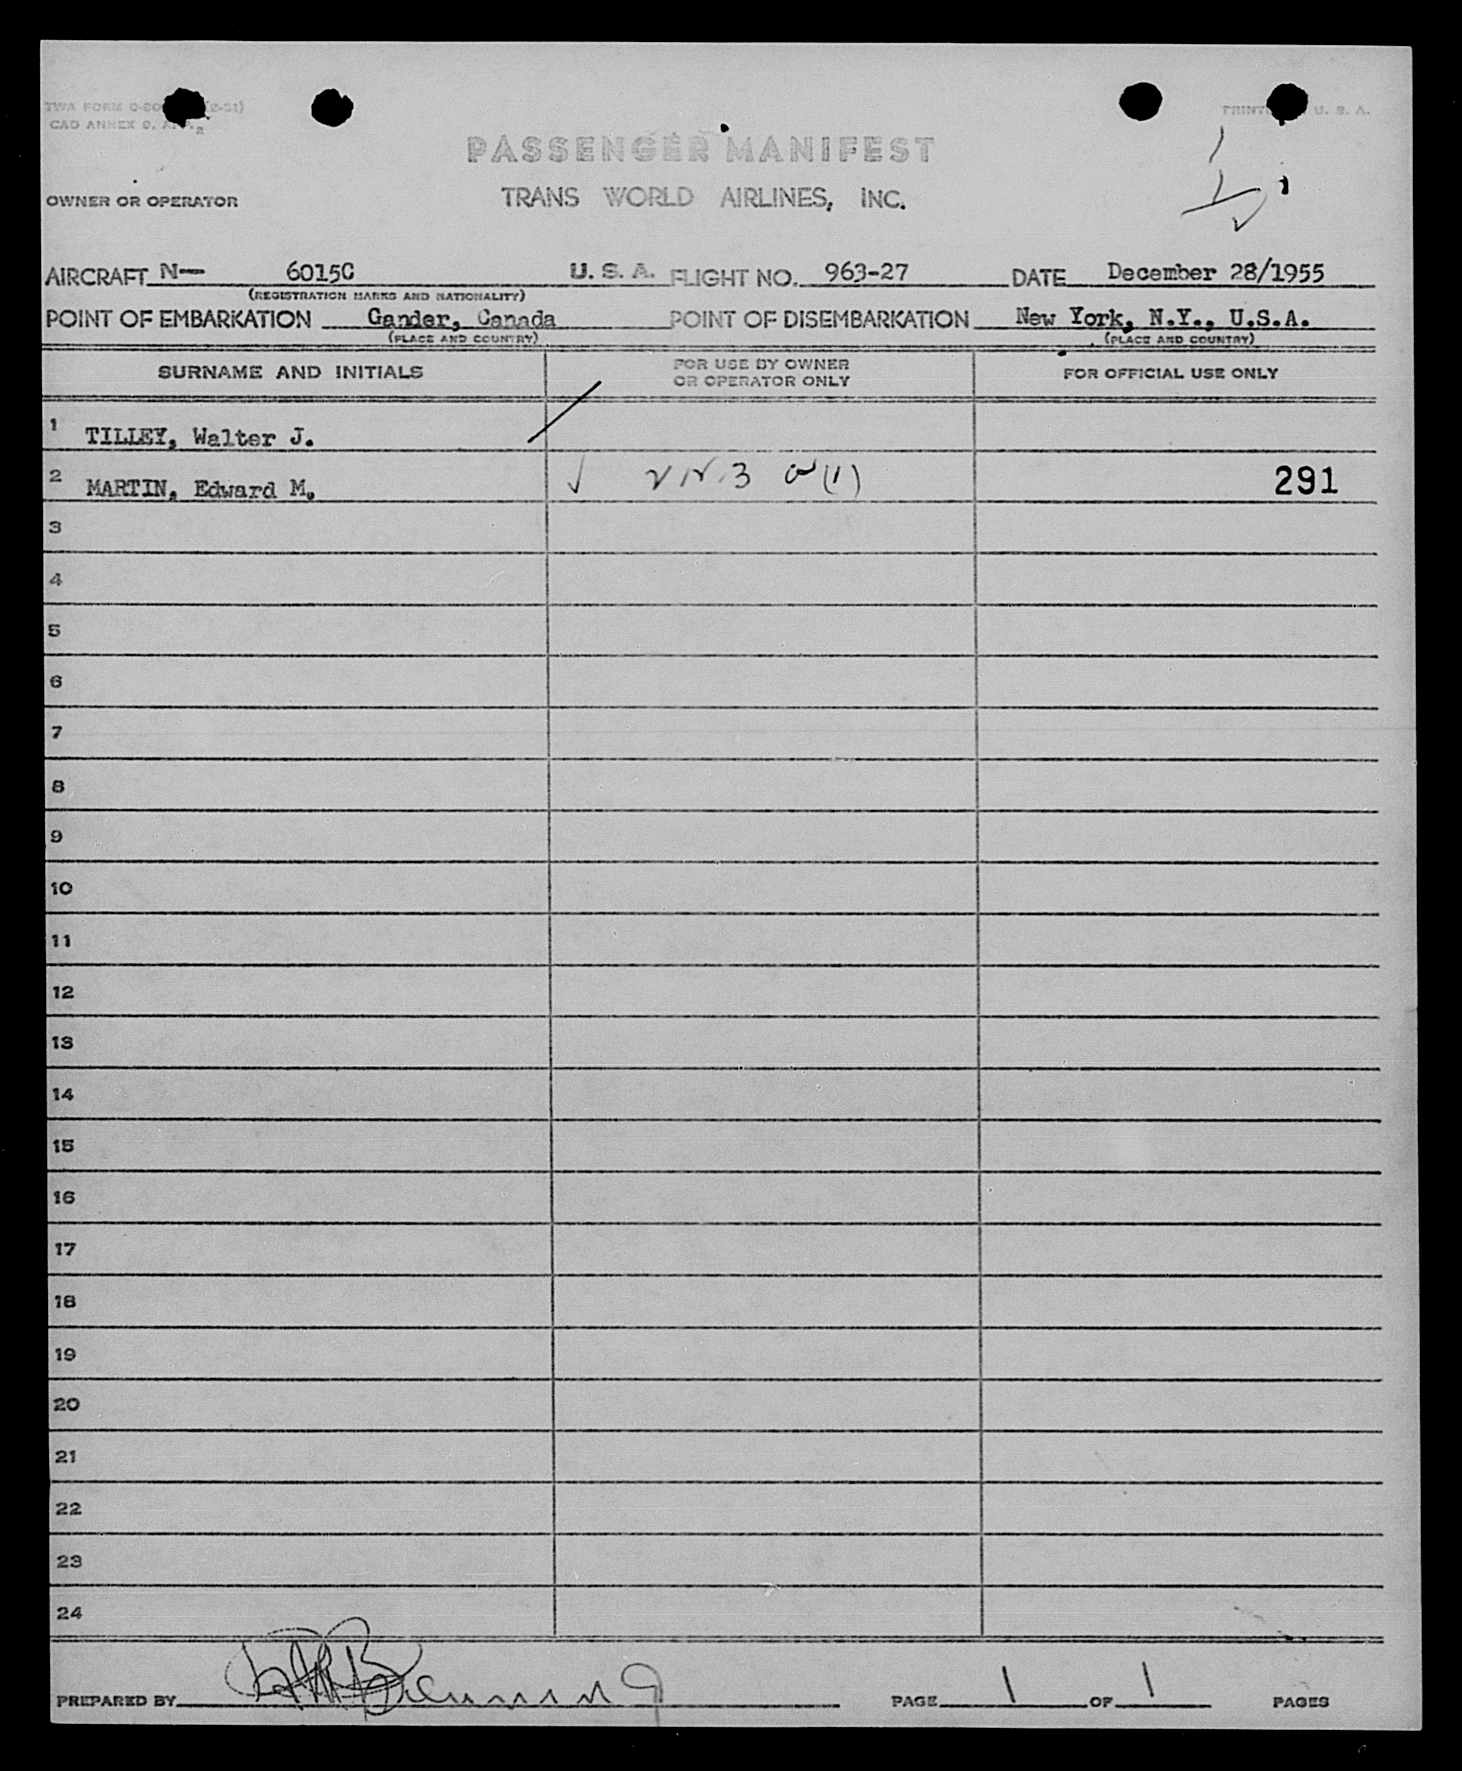 TWA FORM O-
(2-51)
PRINT
U. S. A.
CAO ANNEX 9,
PASSENGER MANIFEST
OWNER OR OPERATOR
TRANS WORLD AIRLINES, INC.
AIRCRAFT N— 6015C U. S. A. FLIGHT NO. 963-27 DATE December 28/1955
(REGISTRATION MARKS AND NATIONALITY)
POINT OF EMBARKATION Gander, Canada POINT OF DISEMBARKATION New York, N.Y., U.S.A.
(PLACE AND COUNTRY) (PLACE AND COUNTRY)
SURNAME AND INITIALS
FOR USE BY OWNER
OR OPERATOR ONLY
FOR OFFICIAL USE ONLY
1 TILLEY, Walter J.
2 MARTIN, Edward M. 291
3
4
5
6
7
8
9
10
11
12
13
14
15
16
17
18
19
20
21
22
23
24
PREPARED BY PAGE 1 OF 1 PAGES